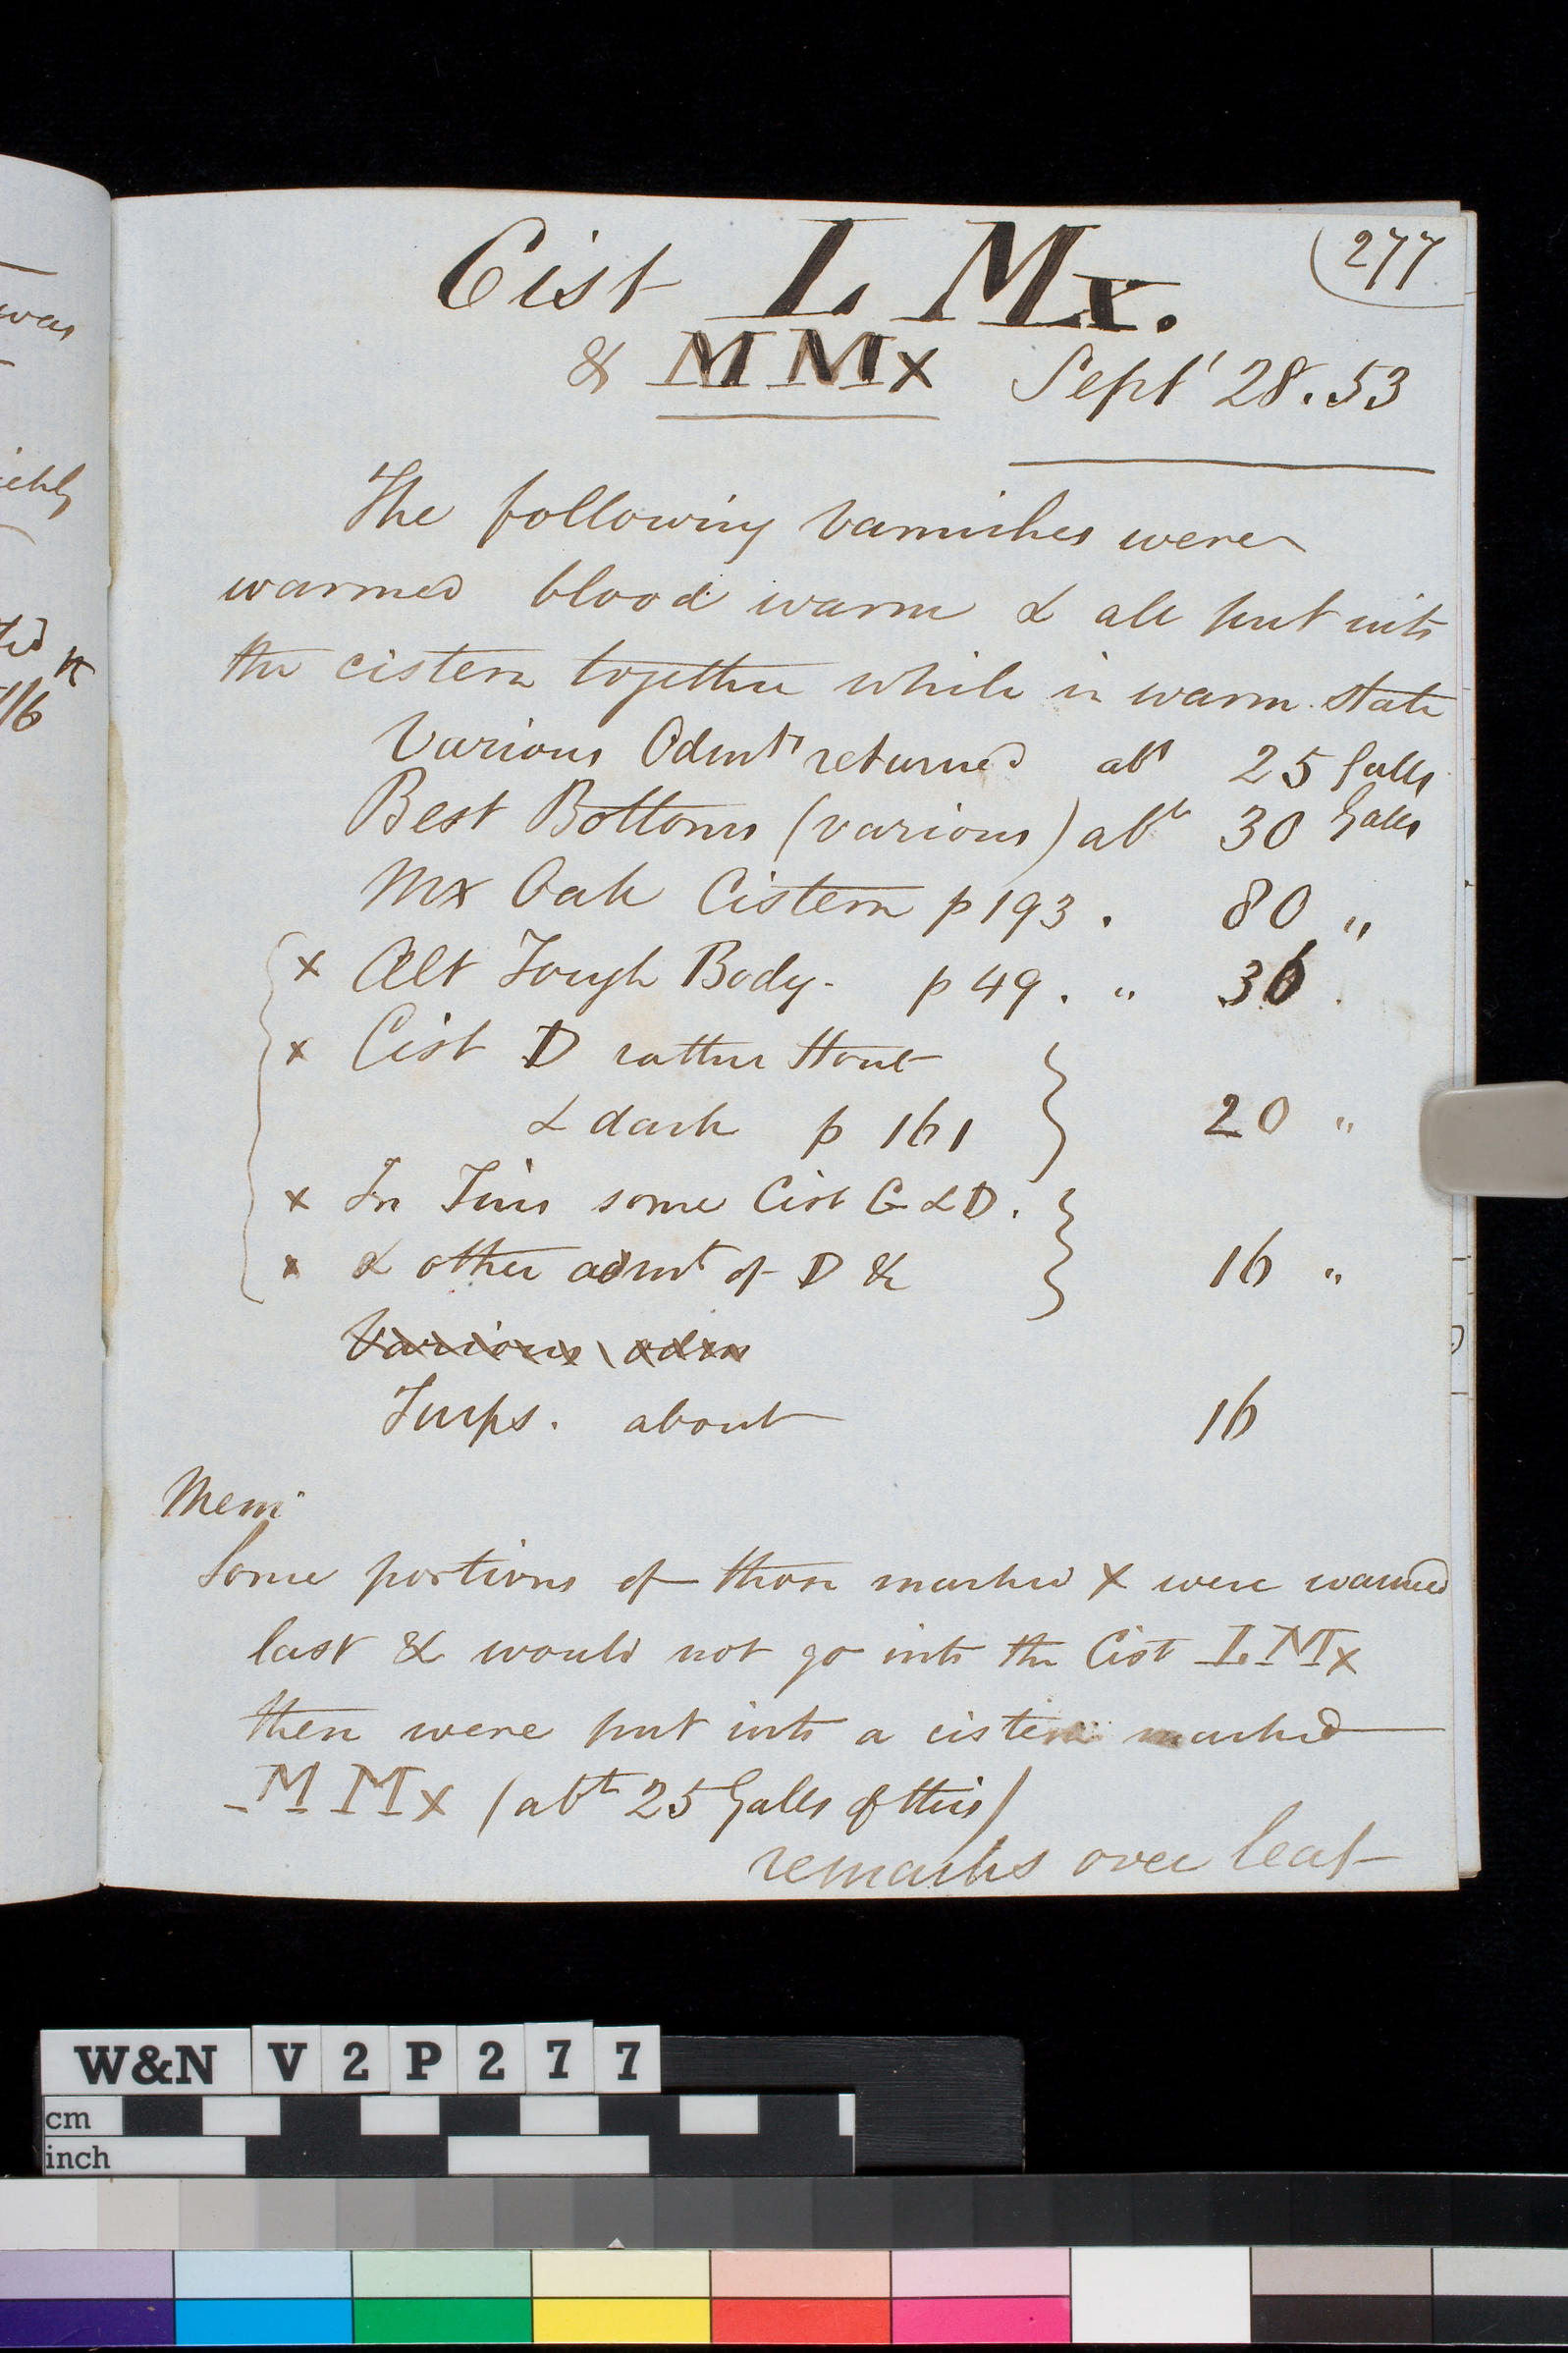 277
Cist L Mx.
& M Mx Sept' 28. 53
The following Varnishes were
warmed blood warm & all put into
the cistern together while in warm state
Various Odmts returned abt 25 Galls
Best Bottoms (various) abt 30 Galls
Mx Oak Cistern p 193 . 80 "
x Alt Tough Body - p 49 . " 36 .
x Cist D rather stout
& dark p 161 20 "
x In Tins some Cist C & D .
x & other admt of D & 16 "
Various odm
Turps. about 16
Mem
Some portions of those marked x were warmed
last & would not go into the Cist L. Mx
then were put into a cistern marked
M Mx (abt 25 Galls of this)
remarks over leaf
was
ichly
ted
W&N V2P277
cm
inch